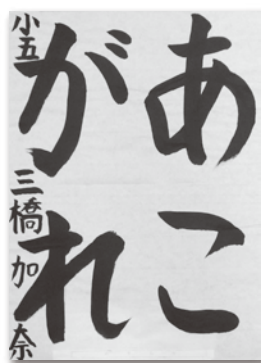 あこ
がれ
小五 三橋加奈